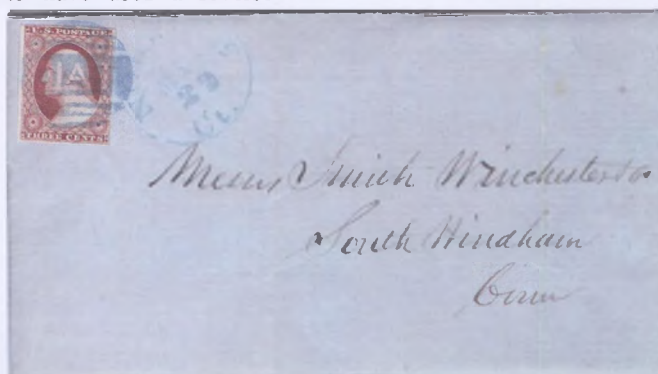 U.S. POSTAGE
THREE CENTS
29
Messrs Smith Winchester & Co
South Windham
Conn